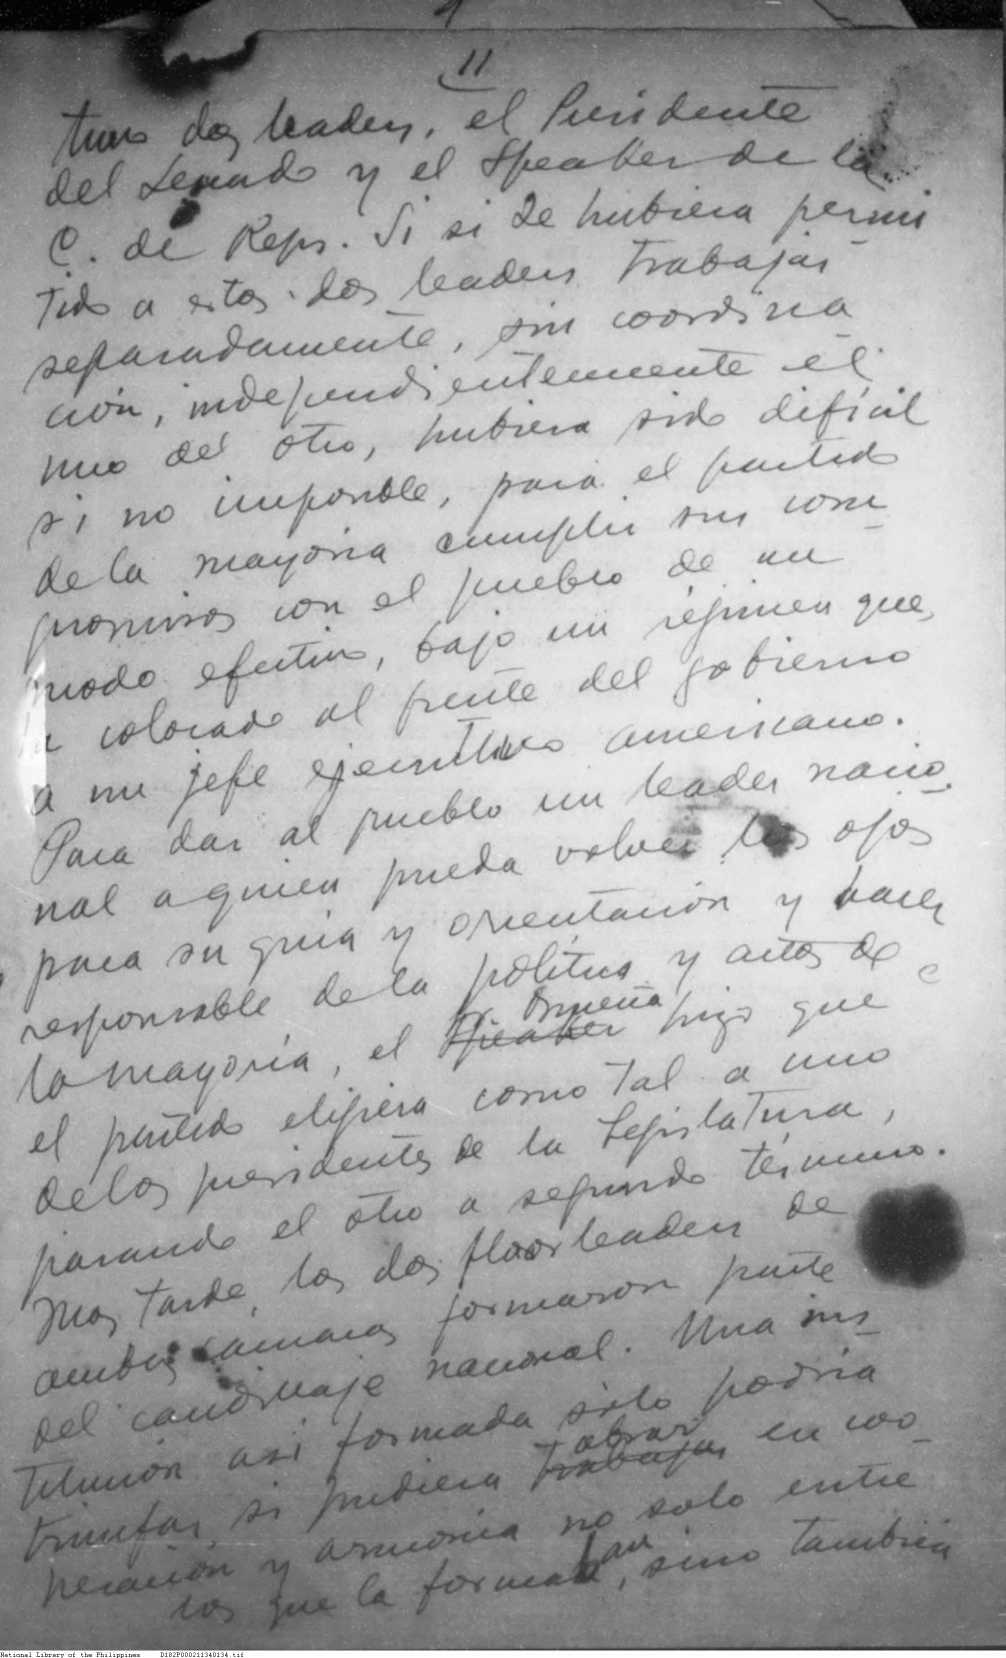 11
tuvo dos leaders, el Presidente
del Senado y el Speaker de la
C. de Reps. Si si se hubiera permi
tido a estos dos leaders trabajar
separadamente, sin coordina_
ción, independientemente el
uno del otro, hubiera sido difícil
si no imposible, para el partido
de la mayoria cumplir sus com_
promisos con el pueblo de un
modo efectivo, bajo un régimen que
ha colocado al frente del gobierno
a un jefe ejecutivo americano.
Para dar al pueblo un leader nacio_
nal a quien pueda volver los ojos
para su guia y orientación y hacer
responsable de la política y actos de
la mayoria, el Sr. Osmeña Speaker hizo que
el partido eligiera como tal a uno
de los presidentes de la Legislatura,
pasando el otro a segundo término.
Mas tarde, los dos floorleaders de
ambas camaras formaron parte
del caudinaje nacional. Una ins_
titución asi formada sólo podria
triunfar si pudiera trabajar obrar en coo_
peración y armonia no solo entre
los que la formaban, sino también
National Library of the Philippines D182P000211340134.tif